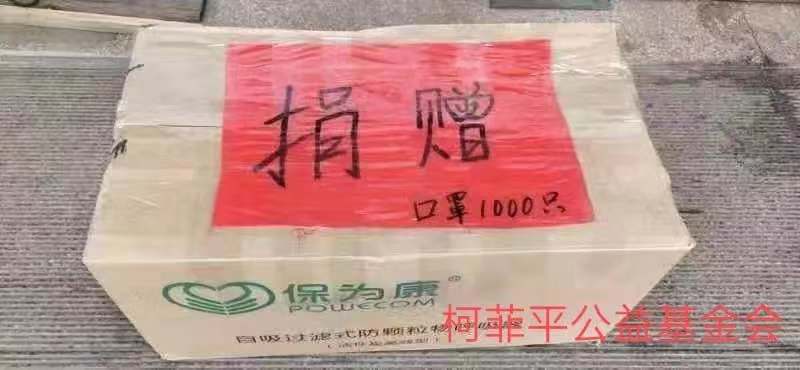 捐赠
口罩1000只
保为康®
POWECOM
自吸过滤式防颗粒物呼吸器
柯菲平公益基金会